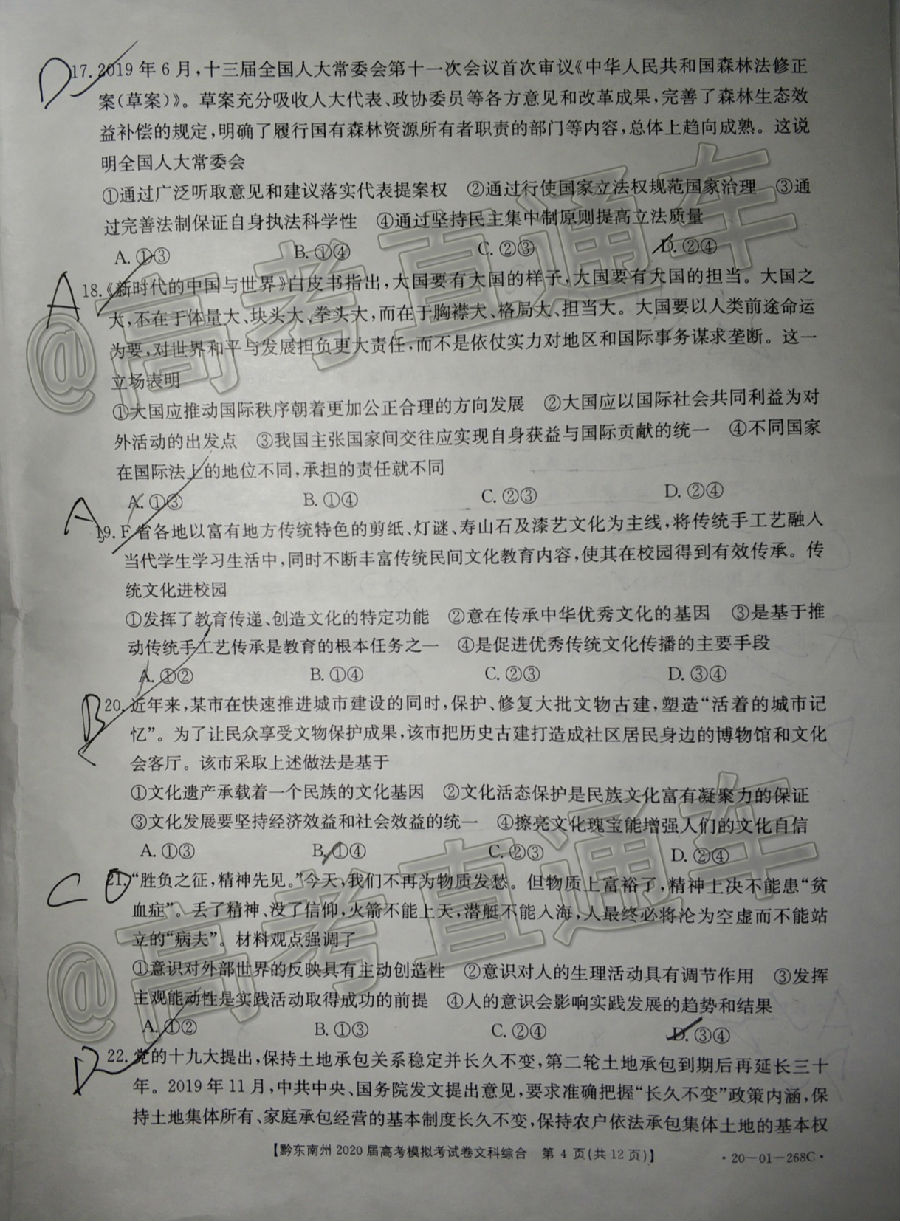 D 17. 2019 年 6 月，十三届全国人大常委会第十一次会议首次审议《中华人民共和国森林法修正
案(草案)》。草案充分吸收人大代表、政协委员等各方意见和改革成果，完善了森林生态效
益补偿的规定，明确了履行国有森林资源所有者职责的部门等内容，总体上趋向成熟。这说
明全国人大常委会
①通过广泛听取意见和建议落实代表提案权 ②通过行使国家立法权规范国家治理 ③通
过完善法制保证自身执法科学性 ④通过坚持民主集中制原则提高立法质量
A. ①③ B. ①④ C. ②③ D. ②④
A 18.《新时代的中国与世界》白皮书指出，大国要有大国的样子，大国要有大国的担当。大国之
大，不在于体量大、块头大、拳头大，而在于胸襟大、格局大、担当大。大国要以人类前途命运
为要，对世界和平与发展担负更大责任，而不是依仗实力对地区和国际事务谋求垄断。这一
立场表明
①大国应推动国际秩序朝着更加公正合理的方向发展 ②大国应以国际社会共同利益为对
外活动的出发点 ③我国主张国家间交往应实现自身获益与国际贡献的统一 ④不同国家
在国际法上的地位不同，承担的责任就不同
A. ①③ B. ①④ C. ②③ D. ②④
A 19. F 省各地以富有地方传统特色的剪纸、灯谜、寿山石及漆艺文化为主线，将传统手工艺融入
当代学生学习生活中，同时不断丰富传统民间文化教育内容，使其在校园得到有效传承。传
统文化进校园
①发挥了教育传递、创造文化的特定功能 ②意在传承中华优秀文化的基因 ③是基于推
动传统手工艺传承是教育的根本任务之一 ④是促进优秀传统文化传播的主要手段
A. ①② B. ①④ C. ②③ D. ③④
B 20. 近年来，某市在快速推进城市建设的同时，保护、修复大批文物古建，塑造“活着的城市记
忆”。为了让民众享受文物保护成果，该市把历史古建打造成社区居民身边的博物馆和文化
会客厅。该市采取上述做法是基于
①文化遗产承载着一个民族的文化基因 ②文化活态保护是民族文化富有凝聚力的保证
③文化发展要坚持经济效益和社会效益的统一 ④擦亮文化瑰宝能增强人们的文化自信
A. ①③ B. ①④ C. ②③ D. ②④
C D 21. “胜负之征，精神先见。”今天，我们不再为物质发愁。但物质上富裕了，精神上决不能患“贫
血症”。丢了精神、没了信仰，火箭不能上天，潜艇不能入海，人最终必将沦为空虚而不能站
立的“病夫”。材料观点强调了
①意识对外部世界的反映具有主动创造性 ②意识对人的生理活动具有调节作用 ③发挥
主观能动性是实践活动取得成功的前提 ④人的意识会影响实践发展的趋势和结果
A. ①② B. ①③ C. ②④ D. ③④
D 22. 党的十九大提出，保持土地承包关系稳定并长久不变，第二轮土地承包到期后再延长三十
年。2019 年 11 月，中共中央、国务院发文提出意见，要求准确把握“长久不变”政策内涵，保
持土地集体所有、家庭承包经营的基本制度长久不变，保持农户依法承包集体土地的基本权
【黔东南州 2020 届高考模拟考试卷文科综合 第 4 页(共 12 页)】 ·20－01－268C·
@高考直通车
@高考直通车